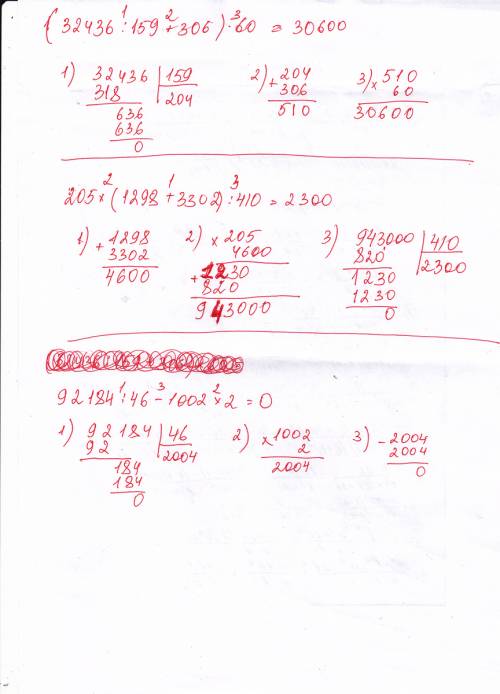 (32436 : 159 + 306) · 60 = 30600
1 2 3
1) 32436 | 159 2) + 204 3) × 510
318 | 204 306 60
636 510 30600
636
0
205 × (1298 + 3302) : 410 = 2300
2 1 3
1) + 1298 2) × 205 3) 943000 | 410
3302 4600 820 | 2300
4600 + 1230 1230
820 1230
943000 0
92184 : 46 - 1002 × 2 = 0
1 3 2
1) 92184 | 46 2) × 1002 3) - 2004
92 | 2004 2 2004
184 2004 0
184
0